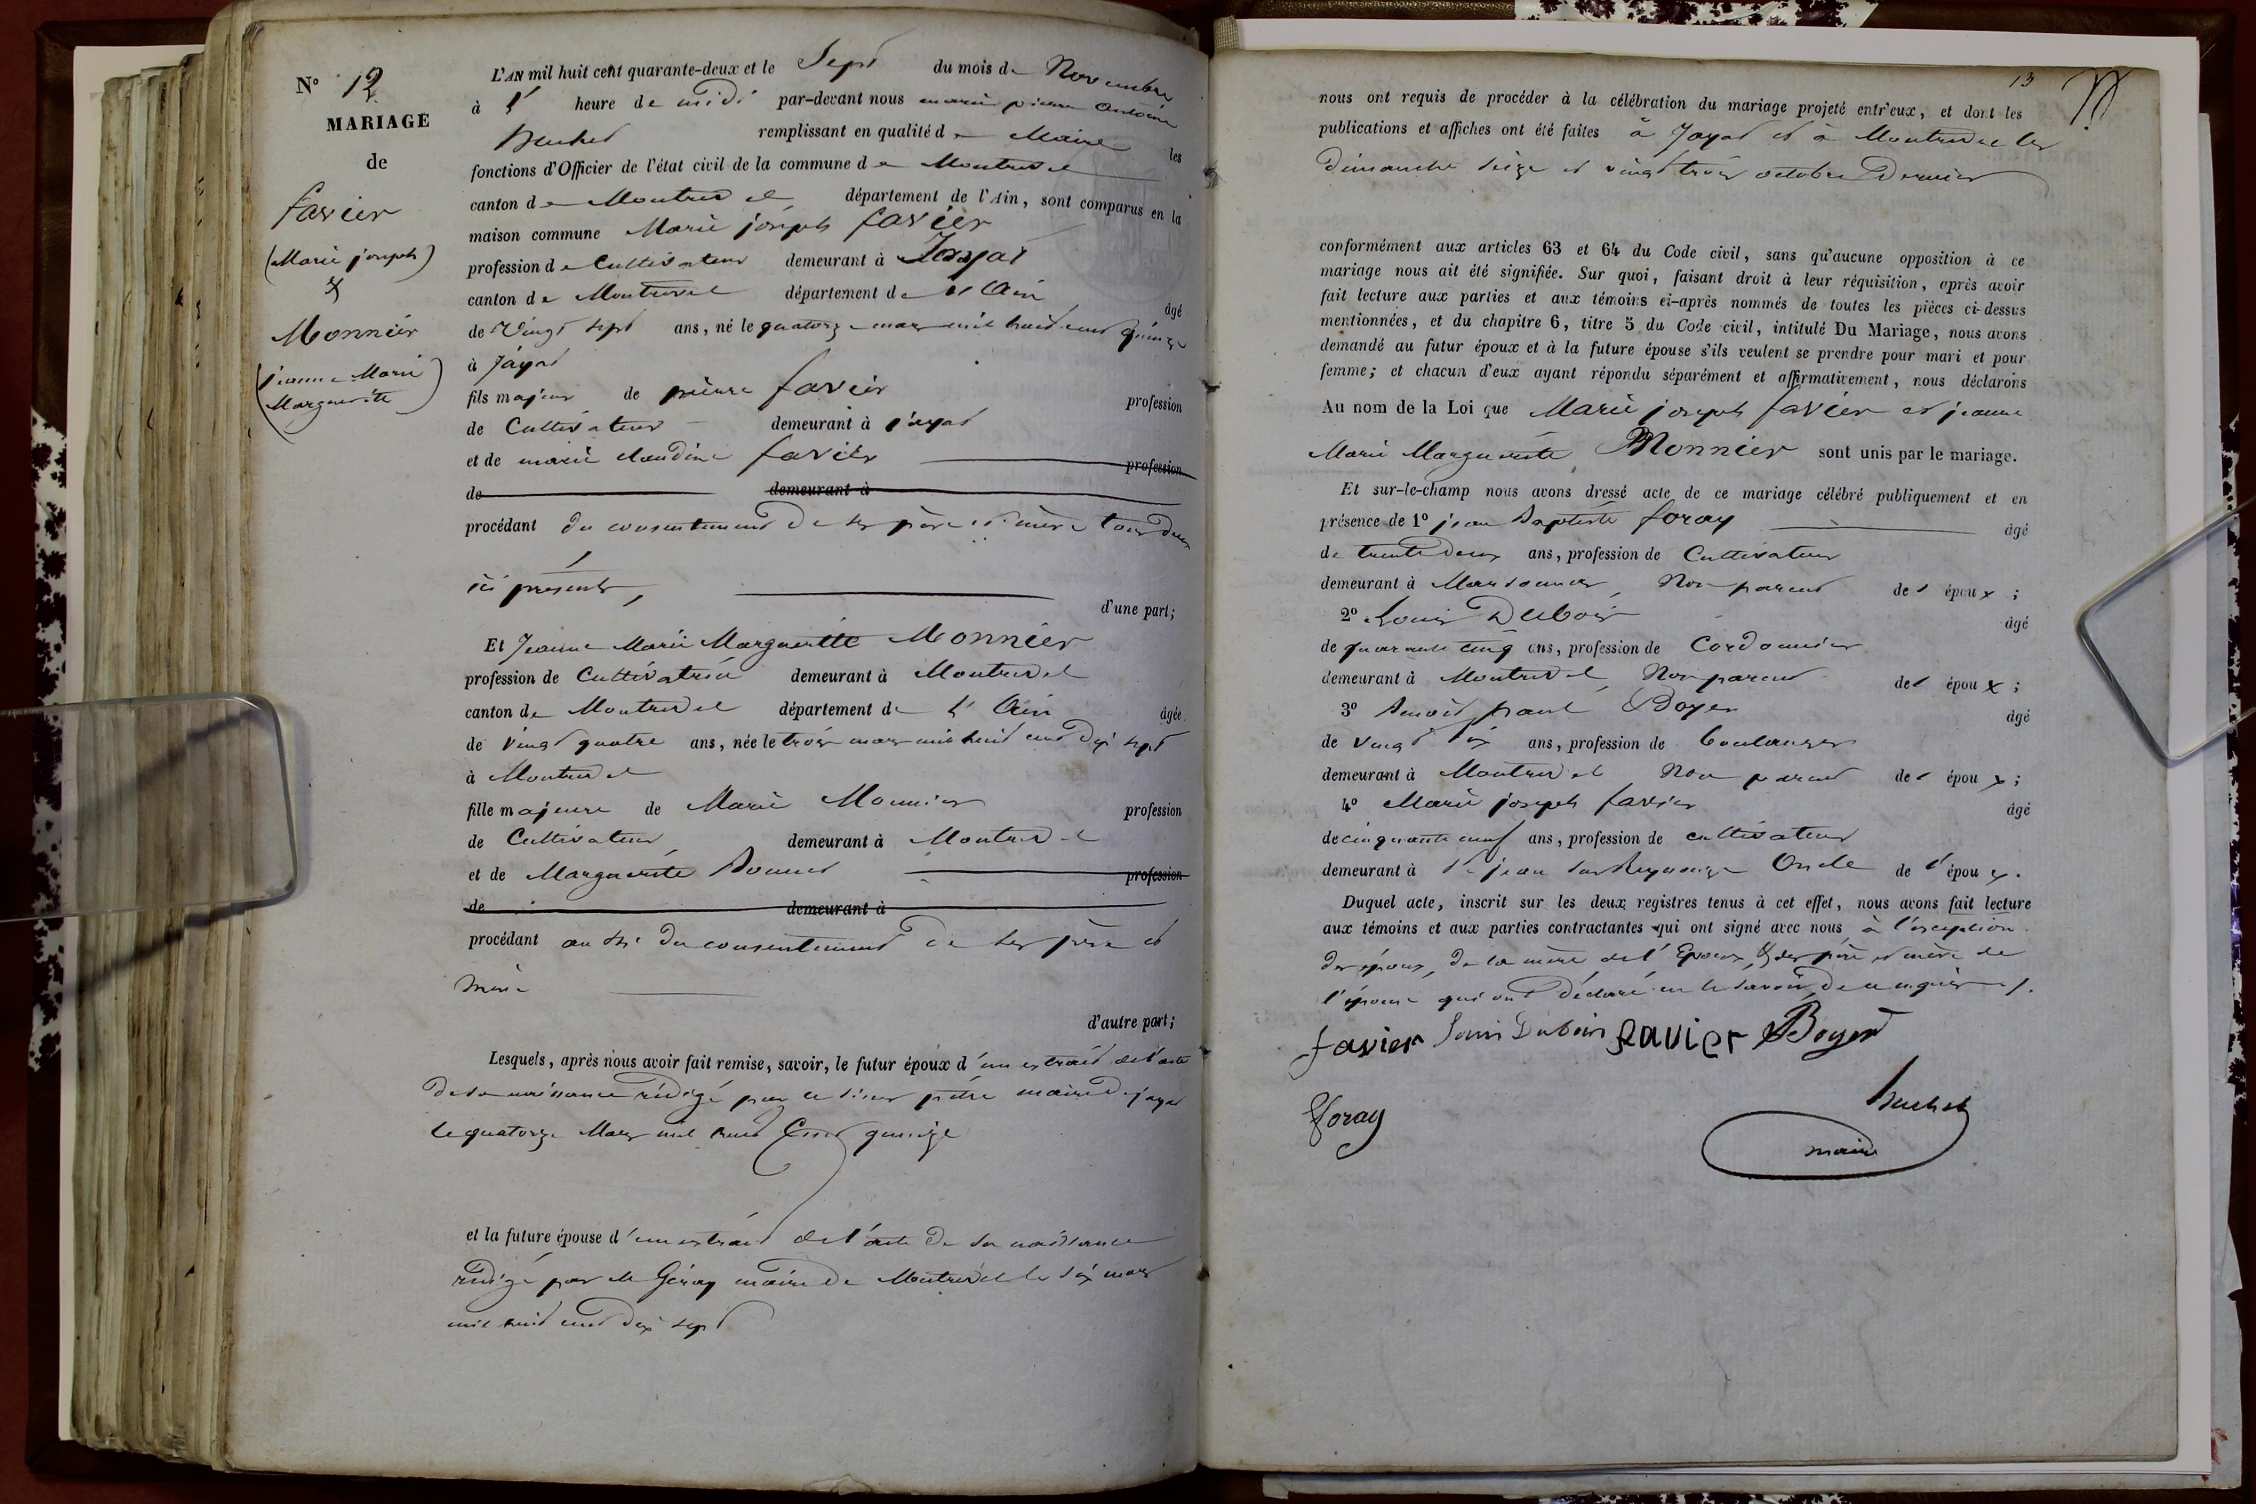 N° 12
MARIAGE
de
favier
(Marie joseph)
&
Monnier
(jeanne Marie
Marguerite)
L'AN mil huit cent quarante-deux et le Sept du mois de Novembre
à l' heure de midi par-devant nous marie pierre Antoine
remplissant en qualité de Maire les
fonctions d'Officier de l'état civil de la commune de Montrevel
canton de Montrevel département de l'Ain, sont comparus en la
maison commune Marie joseph favier
profession de Cultivateur demeurant à Jayat
canton de Montrevel département de l'Ain âgé
de Vingt sept ans, né le quatorze mars mil huit cent quinze
à Jayat
fils majeur de pierre favier profession
de Cultivateur demeurant à jayat
et de marie claudine favier profession
de demeurant à
procédant du consentement de ses père et mère tous deux
ici présents, d'une part;
Et Jeanne Marie Marguerite Monnier
profession de Cultivatrice demeurant à Montrevel
canton de Montrevel département de l'Ain âgée
de vingt quatre ans, née le trois mars mil huit cent dix sept
à Montrevel
fille majeure de Marie Monnier profession
de Cultivateur demeurant à Montrevel
et de Marguerite profession
de demeurant à
procédant aussi du consentement de ses père et
mère
d'autre part;
Lesquels, après nous avoir fait remise, savoir, le futur époux d'un extrait de l'acte
de sa naissance rédigé par le sieur maire de jayat
le quatorze Mars mil huit Cent quinze
et la future épouse d'un extrait de l'acte de sa naissance
rédigé par Mr maire de Montrevel le six mars
mil huit cent dix sept
13
nous ont requis de procéder à la célébration du mariage projeté entr'eux, et dont les
publications et affiches ont été faites à Jayat et à Montrevel les
dimanche seize et vingt trois octobre Dernier
conformément aux articles 63 et 64 du Code civil, sans qu'aucune opposition à ce
mariage nous ait été signifiée. Sur quoi, faisant droit à leur réquisition, après avoir
fait lecture aux parties et aux témoins ci-après nommés de toutes les pièces ci-dessus
mentionnées, et du chapitre 6, titre 5 du Code civil, intitulé Du Mariage, nous avons
demandé au futur époux et à la future épouse s'ils veulent se prendre pour mari et pour
femme; et chacun d'eux ayant répondu séparément et affirmativement, nous déclarons
Au nom de la Loi que Marie joseph favier et jeanne
Marie Marguerite Monnier sont unis par le mariage.
Et sur-le-champ nous avons dressé acte de ce mariage célébré publiquement et en
présence de 1° jean Baptiste foray âgé
de trente deux ans, profession de Cultivateur
demeurant à Marsonnas, Non parent des époux;
2° Louis Dubois âgé
de quarante cinq ans, profession de Cordonnier
demeurant à Montrevel, Non parent des époux;
3° Benoit paul Boyer âgé
de vingt six ans, profession de boulanger
demeurant à Montrevel Non parent des époux;
4° Marie joseph favier âgé
de cinquante neuf ans, profession de cultivateur
demeurant à St jean sur Reyssouze Oncle de l'époux.
Duquel acte, inscrit sur les deux registres tenus à cet effet, nous avons fait lecture
aux témoins et aux parties contractantes qui ont signé avec nous à l'exception
des époux, de la mère de l'Epoux, & des père et mère de
l'épouse qui ont déclaré ne le savoir, de ce requis.
favier Louis Dubois favier Boyer
foray
maire